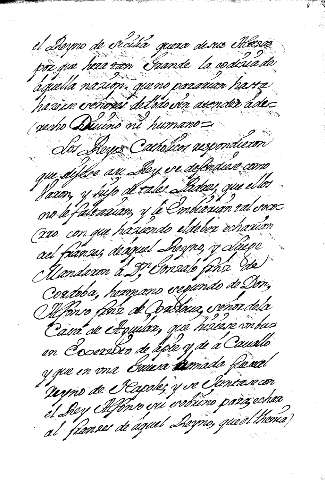 el Reyno de Sicilia fuera de su
por que hera tan grande la
aquella nazion, que no pararian hasta
hacerse señores de todo sin atender a de-
recho Divino ni humano =
Los Reyes Catholicos respondieron
que el Rey se defendiese como
varon, y hijo de tales Padres, que ellos
no le faltarian, y le embiarian tal socor-
ro con que haciendo el deber echarian
al frances de aquel Reyno, y luego
Mandaron a Dn. Gonzalo frz de
Cordoba, hermano segundo de Don
Alfonso frz de Cordova, señor de la
Casa de Aguilar, que hiciese
un Exercito de Pie y de a Cavallo
y que en una armada fuese al
reyno de Napoles, y se juntase con
el Rey Alfonso su sobrino para echar
al frances de aquel Reyno, que el thenia